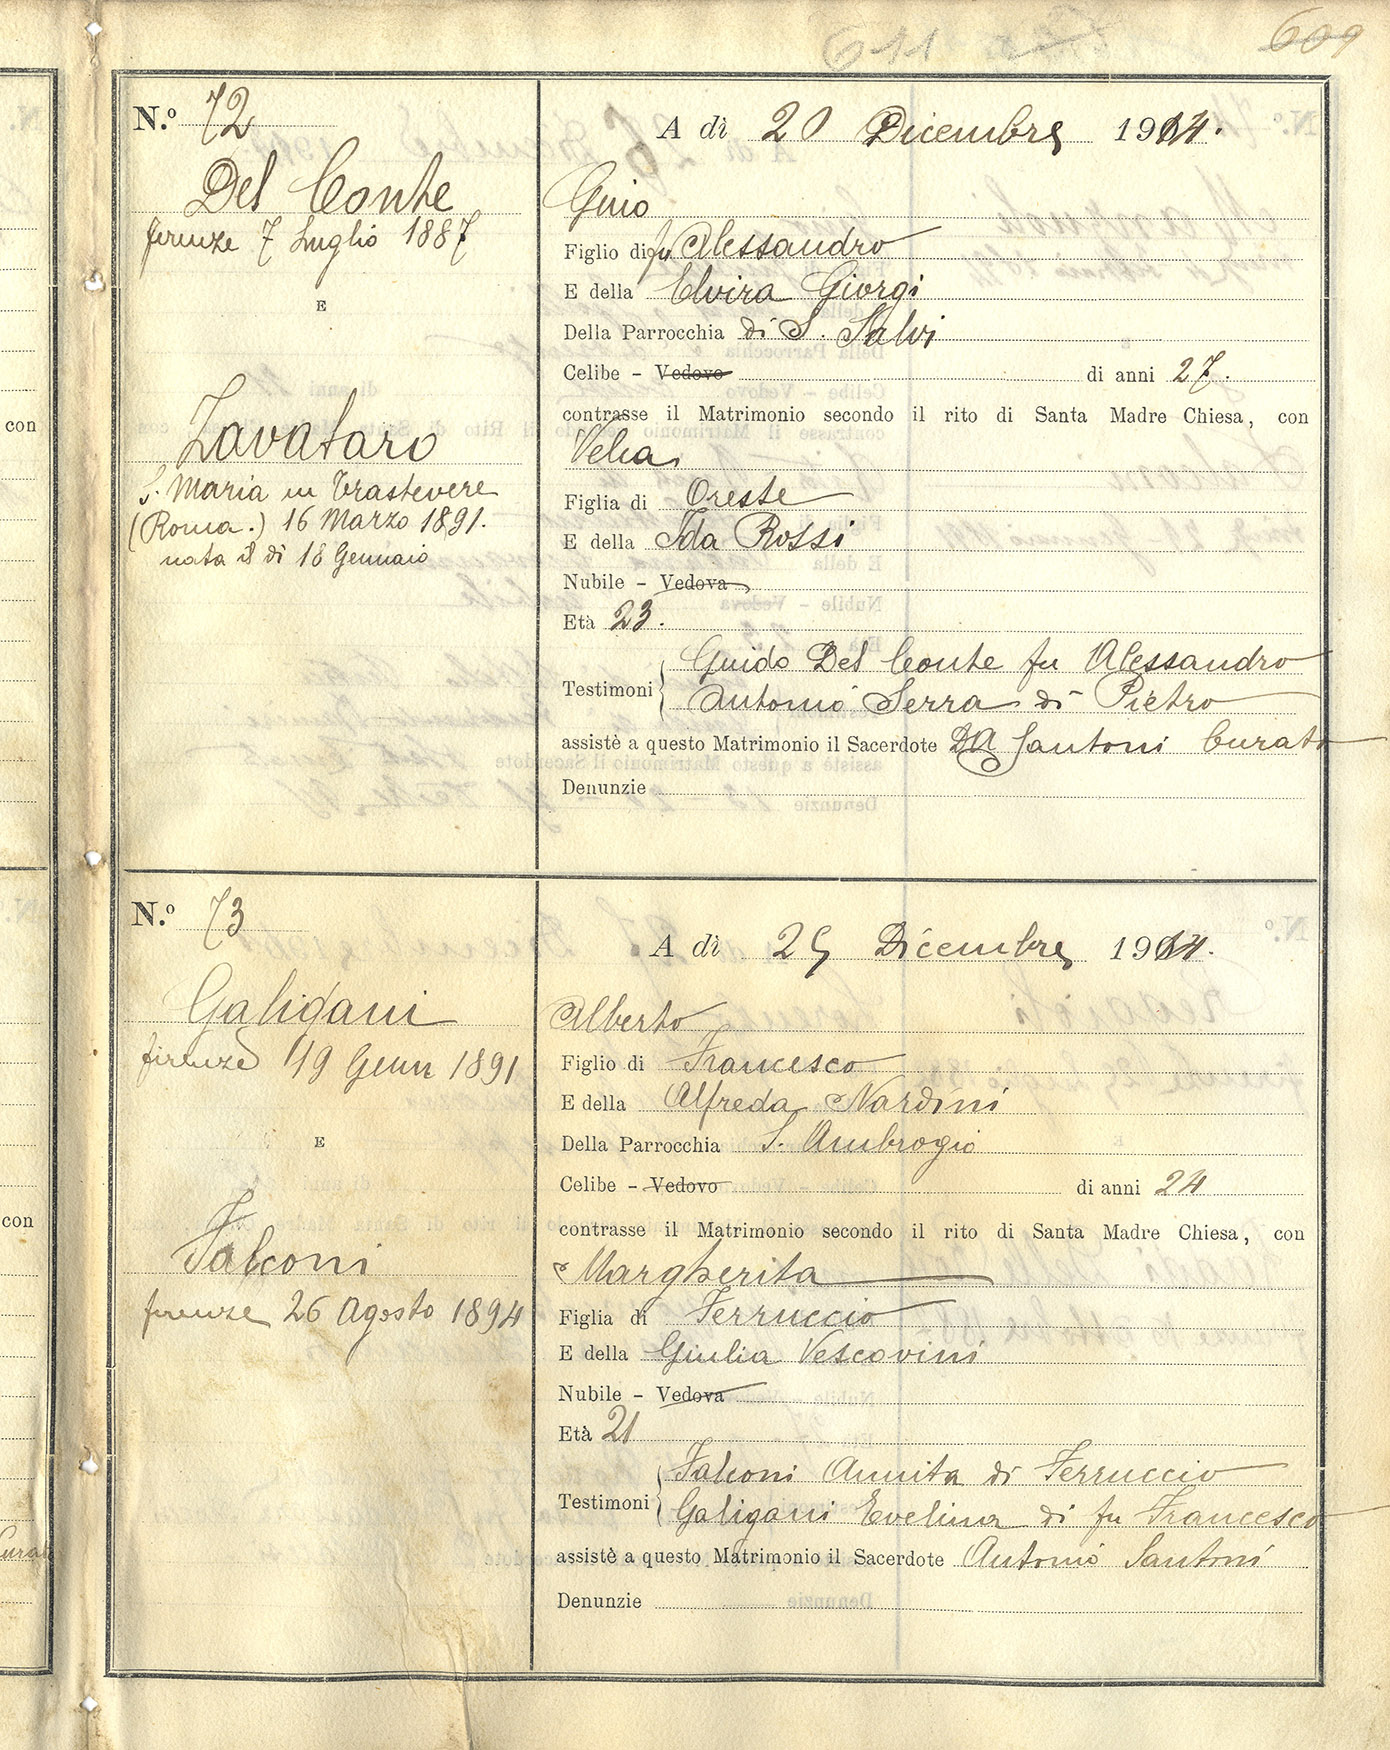 611
609
N.º 72
A dì 20 Dicembre 1914.
Del Conte
firenze 7 Luglio 1887
E
Zavataro
S. Maria in Trastevere
(Roma.) 16 Marzo 1891.
nata il dì 18 Gennaio
Gino
Figlio di fu Alessandro
E della Elvira Giorgi
Della Parrocchia di S. Salvi
Celibe - Vedovo di anni 27.
contrasse il Matrimonio secondo il rito di Santa Madre Chiesa, con
Velia
Figlia di Oreste
E della Ida Rossi
Nubile - Vedova
Età 23.
Testimoni Guido Del Conte fu Alessandro
Antonio Serra di Pietro
assistè a questo Matrimonio il Sacerdote DA Santoni Curato
Denunzie
N.º 73
A dì 25 Dicembre 1914.
Galigani
firenze 19 Genn 1891
E
Falconi
firenze 26 Agosto 1894
Alberto
Figlio di Francesco
E della Alfreda Nardini
Della Parrocchia S. Ambrogio
Celibe - Vedovo di anni 24
contrasse il Matrimonio secondo il rito di Santa Madre Chiesa, con
Margherita
Figlia di Ferruccio
E della Giulia Vescovini
Nubile - Vedova
Età 21
Testimoni Falconi Annita di Ferruccio
Galigani Evelina di fu Francesco
assistè a questo Matrimonio il Sacerdote Antonio Santoni
Denunzie
con
con